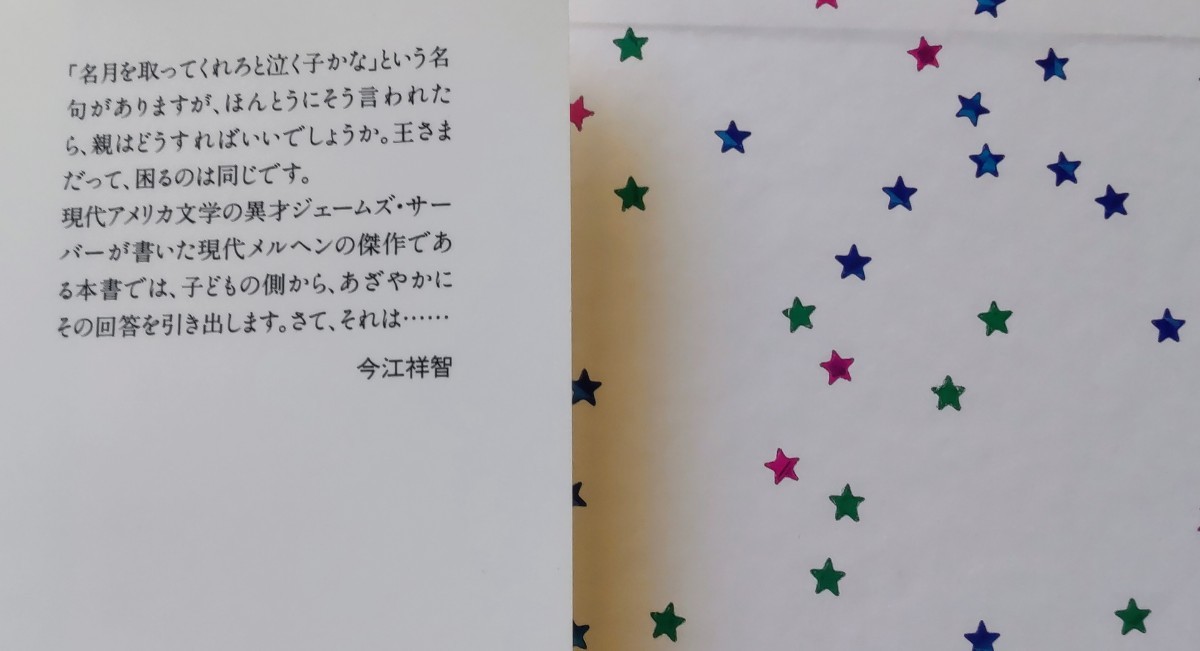 「名月を取ってくれろと泣く子かな」という名
句がありますが、ほんとうにそう言われた
ら、親はどうすればいいでしょうか。王さま
だって、困るのは同じです。
現代アメリカ文学の異才ジェームズ・サー
バーが書いた現代メルヘンの傑作であ
る本書では、子どもの側から、あざやかに
その回答を引き出します。さて、それは……
今江祥智